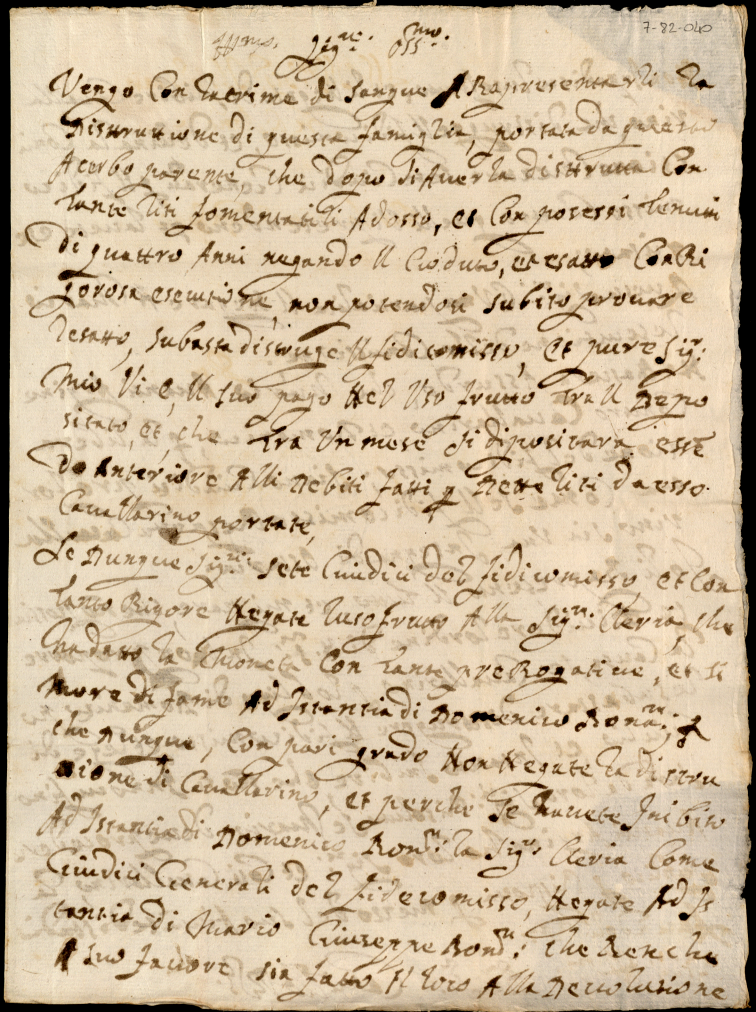 7-82-040
Illmo. Sigre. Ossmo.
Vengo Con lacrime di sangue A Rapresentarli la
Distrutione di questa famiglia, portata da questo
Acerbo parente, che dopo di Averla distrutta Con
tante liti fomentatili Adosso, et Con possessi tenuti
Di quattro Anni negando Il Cioduto, et esatto Con Ri
gorosa esecutione, non potendosi subito provare
lesatto, subasta distruge Il fidicomisso, et pure Sigr:
Mio Vi è, Il suo pago Nel Uso frutto tra Il Depo
sitato, et che tra Un mese si dipositara essē
do Anteriore Alli Debiti fatti p Dette liti da esso
Cavallarino portate,
Se Dunque Sigre: sete Giudici del fidicomisso, et Con
tanto Rigore Negate lusofrutto Alla Sigra: Cleria, che
ha dato le Monete Con tante preRogative, et si
More di fame Ad Istantia di Domenico Rona: p
che Dunque, Con pari grado Non Negate la distru
tione di Cavallarino, et perche Se havete Inibito
Ad Istantia di Domenico Rona: la Sigra Cleria Come
Giudici Generali del fidecomisso, Negate Ad Is
tantia di Mario Giuseppe Rona: che Benche
A suo favore sia fatto Il loro Alla Devolusione